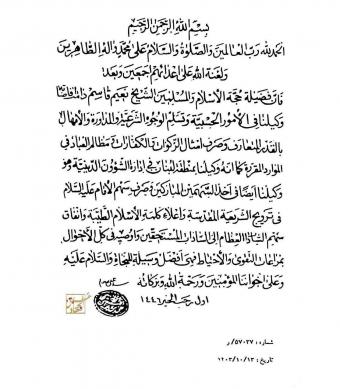 بسم الله الرحمن الرحيم
الحمد لله رب العالمين والصلوة والسلام على محمد وآله الطاهرين
ولعنة الله على اعدائهم اجمعين وبعد:
فان فضيلة حجة الاسلام والمسلمين الشيخ نعيم قاسم دام
وكيلنا في الأمور الحسبية وتسلم الوجوه الشرعية والمداورة والامهال
بالقدر المتعارف وصرف امثال الزكوات والكفارات ومظالم العباد في
الموارد المقررة كما انه وكيلنا بمنطقة لبنان في ادارة الشؤون الدينية وهو
وكيلنا ايضاً في اخذ السهمين المباركين وصرف سهم الامام عليه السلام
في ترويج الشريعة المقدسة واعلاء كلمة الاسلام الطيبة وانفاق
سهم السادة العظام الى السادات المستحقين واوصيه في كل الاحوال
بمراعات التقوى والاحتياط فهي افضل وسيلة للنجاة والسلام عليه
وعلى اخواننا المؤمنين ورحمة الله وبركاته
اول رجب الخير ١٤٤٦
شماره : ٥٧٠٢٧/ر
تاريخ : ١٤٠٣/١٠/١٣